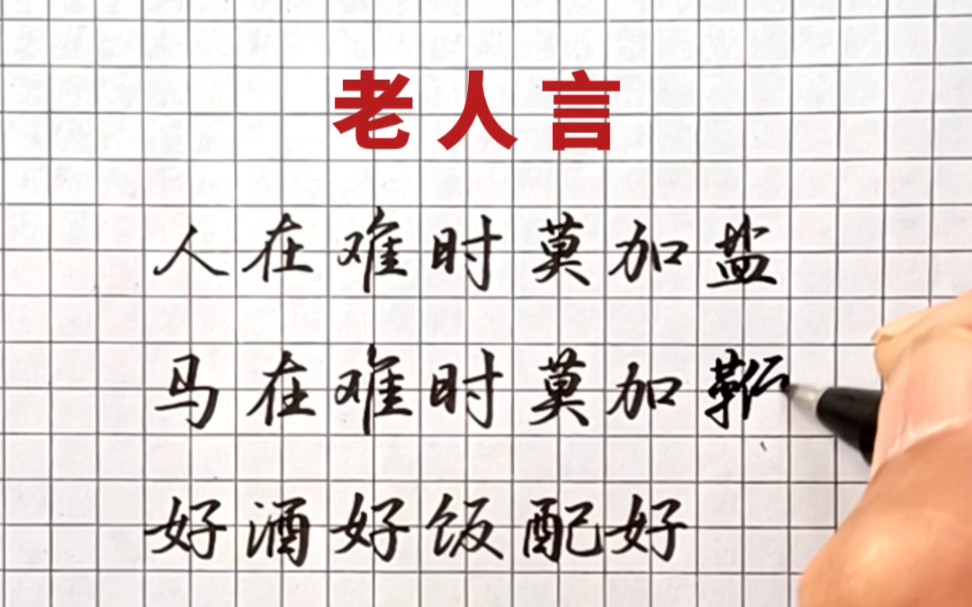 老人言
人在难时莫加盐
马在难时莫加鞭
好酒好饭配好